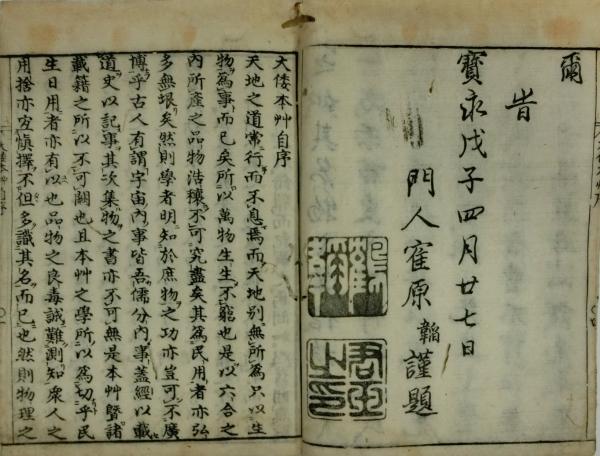 爾
旹
寳永戊子四月廿七日
門人寉原韜謹題
大倭本艸自序
天地之道常行而不息焉而天地別無所爲只以生
物爲事而已矣所以萬物生生不窮也是以六合之
內所產之品物浩穰不可究盡矣其爲民用者亦弘
多無垠矣然則學者明知於庶物之功亦豈可不廣
博乎古人有謂宇宙內事皆吾儒分內事蓋經以載
道史以記事其次集物之書亦不可無是本艸曁諸
載籍之所以不可闕也且本艸之學所以爲切乎民
生日用者亦有以也品物之良毒誠難測知衆人之
用捨亦宜愼擇不但多識其名而已也然則物理之